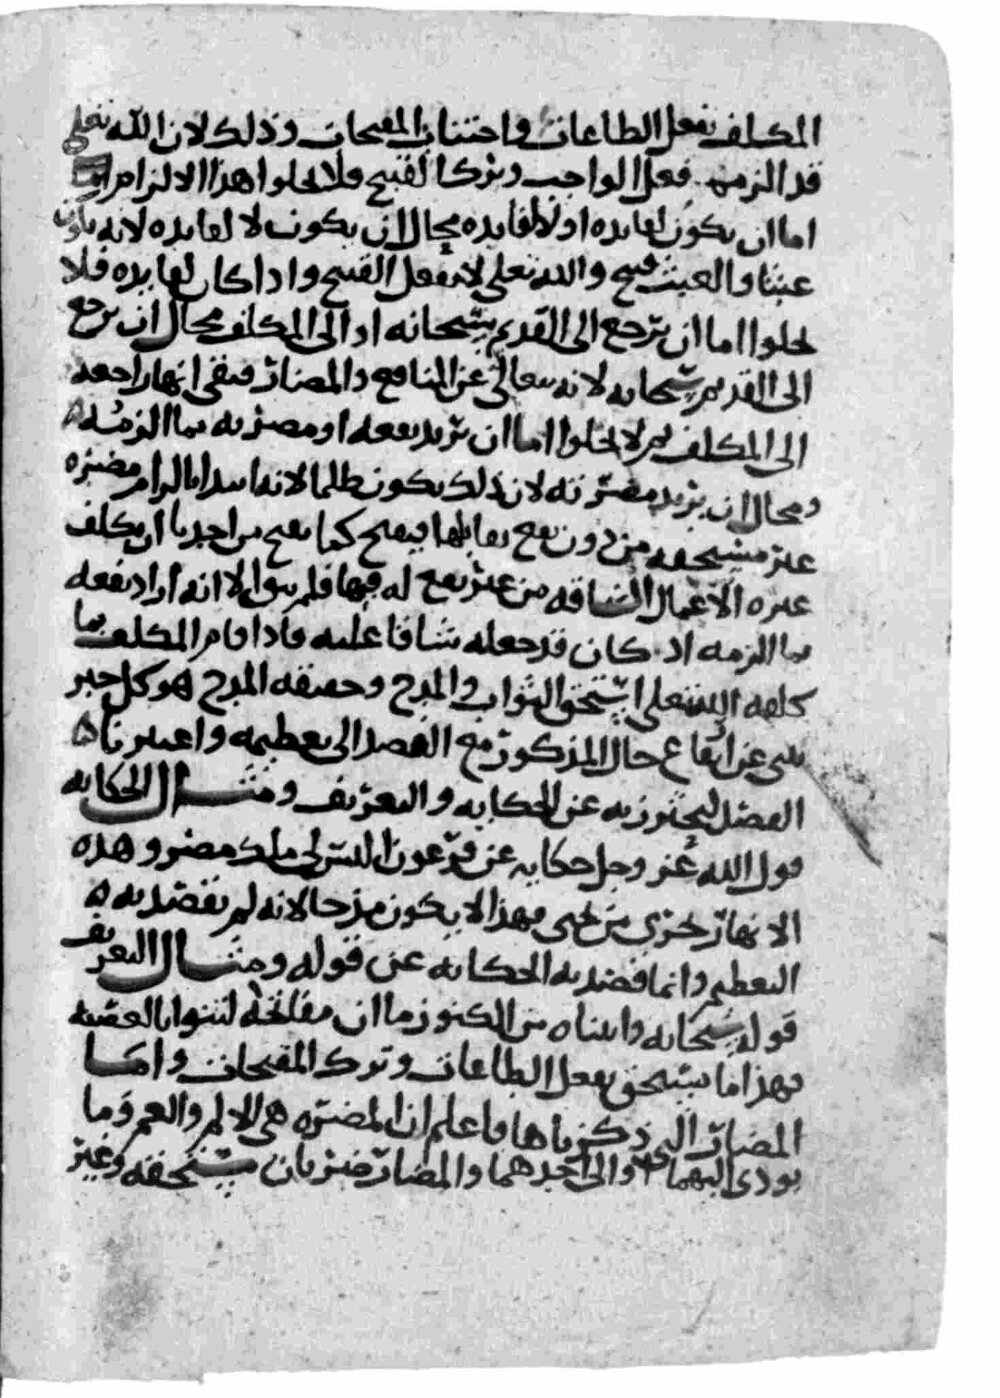 المكلف بفعل الطاعات واجتناب المقبحات وذلك لان الله تعلى
قد الزمه فعل الواجب وترك القبيح فلا يخلوا هذا الالزام
اما ان يكون لفايده او لا لفايده محال ان يكون لا لفايده لانه يكون
عبثا والعبث قبيح والله تعلى لا يفعل القبيح واذا كان لفايده فلا
يخلوا اما ان ترجع الى القديم سبحانه او الى المكلف محال ان ترجع
الى القديم سبحانه لانه يتعالى عن المنافع والمضار فبقى انها راجعه
الى المكلف ثم لا يخلوا اما ان يريد نفعه او مضرته بما الزمه
ومحال ان يريد مضرته لان ذلك يكون ظلما لانه ابتدا بالزام مضره
غير مستحقه من دون نفع يقابلها فيقبح كما يقبح من احدنا ان يكلف
غيره الاعمال الشاقه من غير نفع له فيها فلم يبق الا انه اراد نفعه
بما الزمه اذ كان قد جعله شاقا عليه فاذا قام المكلف بما
كلفه الله تعلى استحق الثواب والمدح وحقيقه المدح هو كل خبر
ينبى عن اتفاع حال المذكور مع القصد الى تعظيمه واعتبرنا
القصد ليحترز به عن الحكايه والتعريف ومثال الحكايه
قول الله عز وجل حكايه عن فرعون اليس لى ملك مصر وهذه
الانهار تجرى من تحتى فهذا لا يكون مدحا لانه لم يقصد به
التعظيم وانما قصد به الحكايه عن قوله ومثال التعريف
قوله سبحانه واتيناه من الكنوز ما ان مفاتحه لتنوا بالعصبه
فهذا ما يستحق بفعل الطاعات وترك المقبحات واما
المضار التى ذكرناها فاعلم ان المضره هى الالم والغم وما
يودى اليهما او الى احدهما والمضار ضربان مستحقه وغير